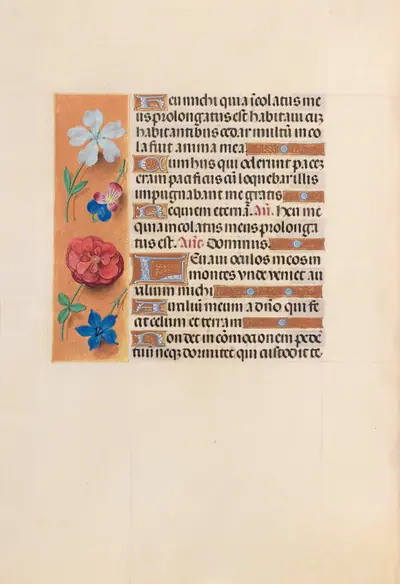 Heu michi quia īcolatus me
us prolongatus est habitaui cū
habitantibus cedar multū inco
la fuit anima mea
Cum hiis qui oderunt pacē
eram pacificus cū loquebar illis
inpugnabant me gratis
Requiem eternā. Añ. Heu me
quia incolatus meus prolonga
tus est. Añe Dominus.
Leuaui oculos meos in
montes vnde veniet au
xilium michi
Auxiliū meum a dño qui fe
cit celum et terram
Non det in cōmocionem pedē
tuū neqz dormitet qui custodit te